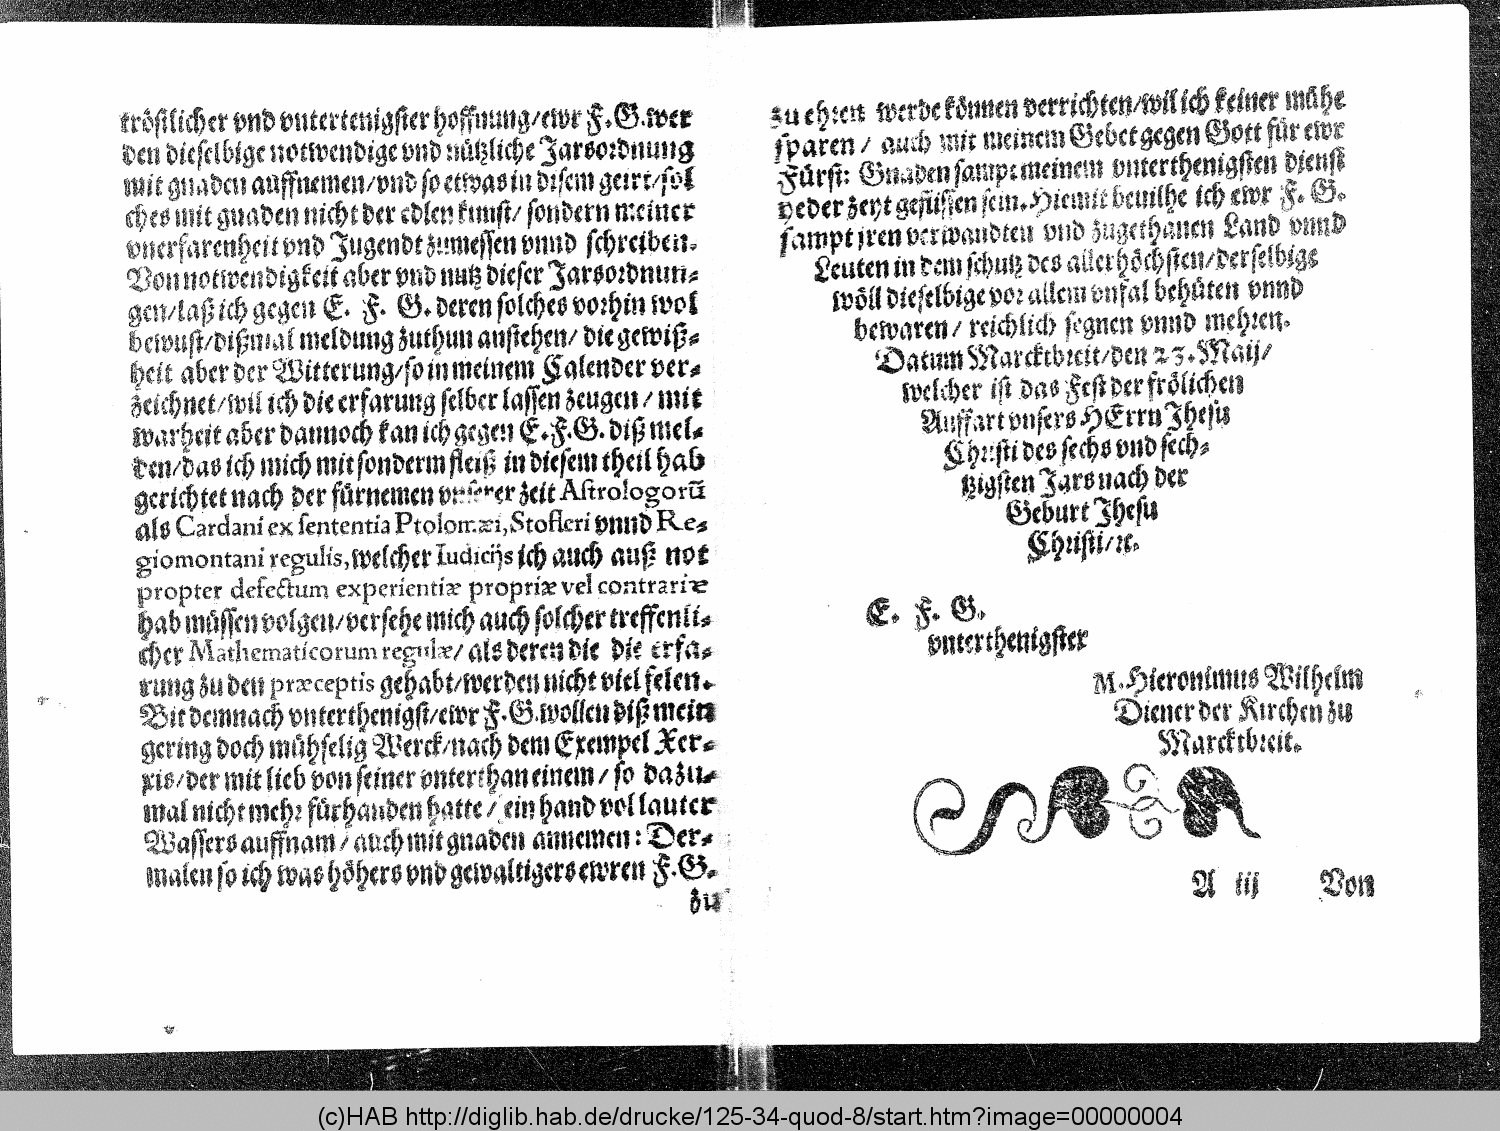 tröstlicher vnd vntertenigster hoffnung/ewr F.G.wer
den dieselbige notwendige vnd nützliche Jarsordnung
mit gnaden auffnemen/vnd so etwas in disem geirrt/sol
ches mit gnaden nicht der edlen kunst/ sondern meiner
vnerfarenheit vnd Jugendt zumessen vnnd schreiben.
Von notwendigkeit aber vnd nutz dieser Jarsordnun⸗
gen/laß ich gegen E. F. G. deren solches vorhin wol
bewust/dißmal meldung zuthun anstehen/ die gewiß⸗
heit aber der Witterung/so in meinem Calender ver⸗
zeichnet/wil ich die erfarung selber lassen zeugen/ mit
warheit aber dannoch kan ich gegen E.F.G. diß mel⸗
den/das ich mich mit sonderm fleiß in diesem theil hab
gerichtet nach der fürnemen vnserer zeit Astrologorũ
als Cardani ex sententia Ptolomæi, Stofleri vnnd Re⸗
giomontani regulis, welcher Iudicijs ich auch auß not
propter defectum experientiæ propriæ vel contrariæ
hab müssen volgen/versehe mich auch solcher treffenli⸗
cher Mathematicorum regulæ/ als deren die die erfa⸗
rung zu den præceptis gehabt/werden nicht viel felen.
Bit demnach vnterthenigst/ewr F.G.wollen diß mein
gering doch mühselig Werck/nach dem Exempel Xer⸗
xis/der mit lieb von seiner vnterthan einem/ so dazu⸗
mal nicht mehr fürhanden hatte/ ein hand vol lauter
Wassers auffnam/ auch mit gnaden annemen: Der⸗
malen so ich was höhers vnd gewaltigers ewren F.G.
zu
zu ehren werde können verrichten/wil ich keiner mühe
sparen/ auch mit meinem Gebet gegen Gott für ewr
Fürst: Gnaden sampt meinem vnterthenigsten dienst
yeder zeyt geflissen sein. Hiemit beuilhe ich ewr F. G.
sampt jren verwandten vnd zugethanen Land vnnd
Leuten in dem schutz des allerhöchsten/derselbige
wöll dieselbige vor allem vnfal behüten vnnd
bewaren/ reichlich segnen vnnd mehren.
Datum Marcktbreit/den 23. Maij/
welcher ist das Fest der frölichen
Auffart vnsers HErrn Jhesu
Christi des sechs vnd sech⸗
tzigsten Jars nach der
Geburt Jhesu
Christi/ꝛc.
E. F. G.
vnterthenigster
M. Hieronimus Wilhelm
Diener der Kirchen zu
Marcktbreit.
A iij Von
(c)HAB http://diglib.hab.de/drucke/125-34-quod-8/start.htm?image=00000004